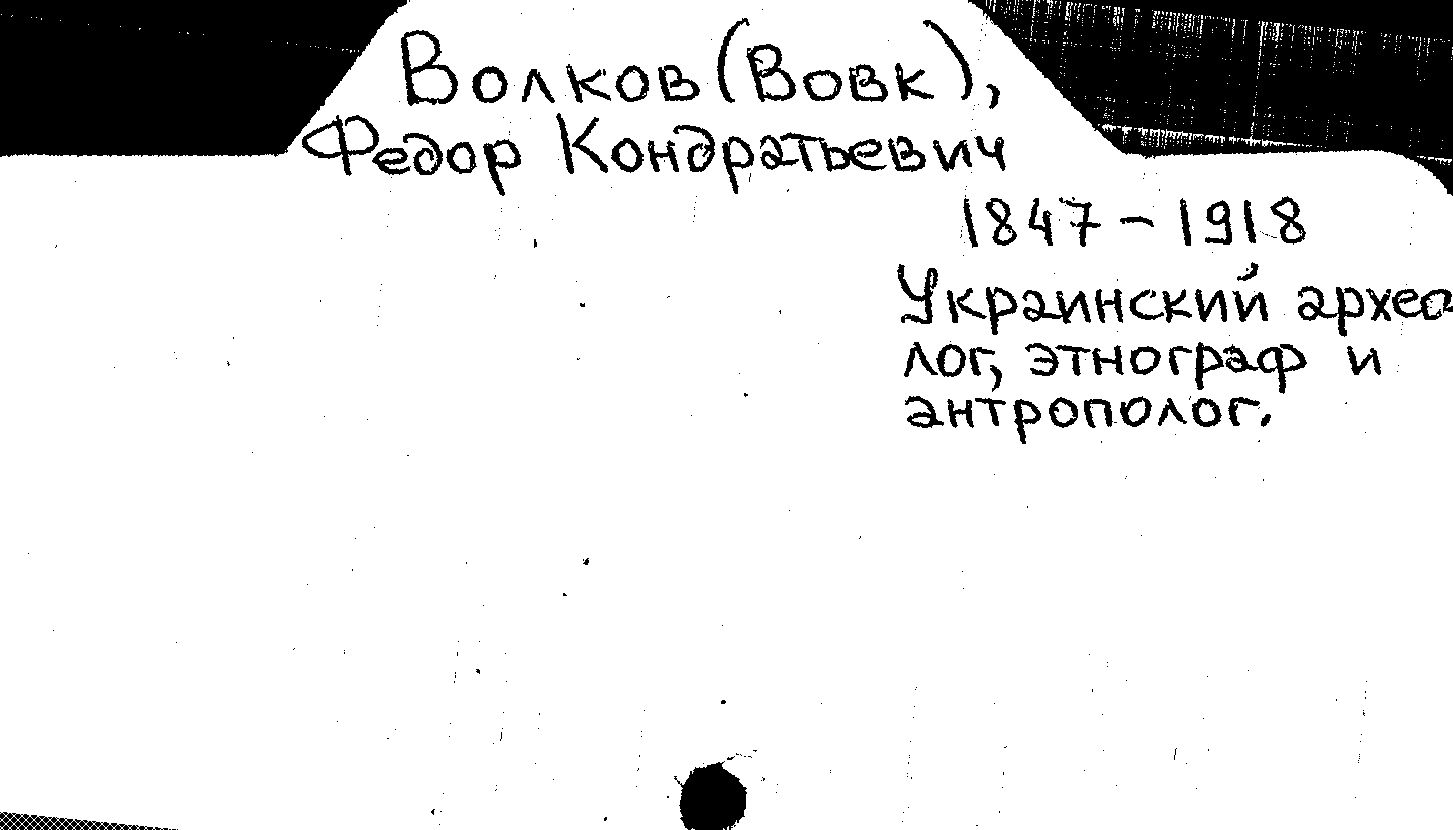 Волков (Вовк),
Федор Кондратьевич
1847 – 1918
Украинский архео
лог, этнограф и
антрополог.